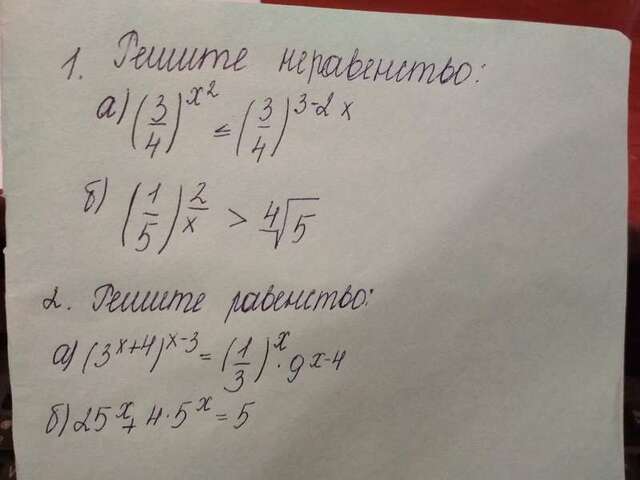 1. Решите неравенство:
а) (3/4)^x² ≤ (3/4)^3-2x
б) (1/5)^2/x > ⁴√5
2. Решите равенство:
а) (3^x+4)^x-3 = (1/3)^x · 9^x-4
б) 25^x + 4·5^x = 5